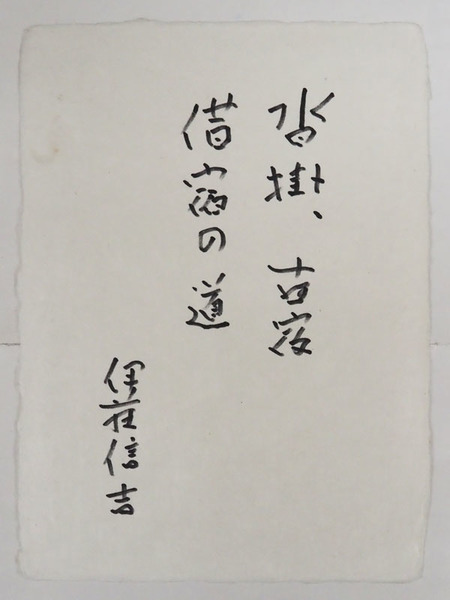 沓掛、古宿
借宿の道
伊藤信吉